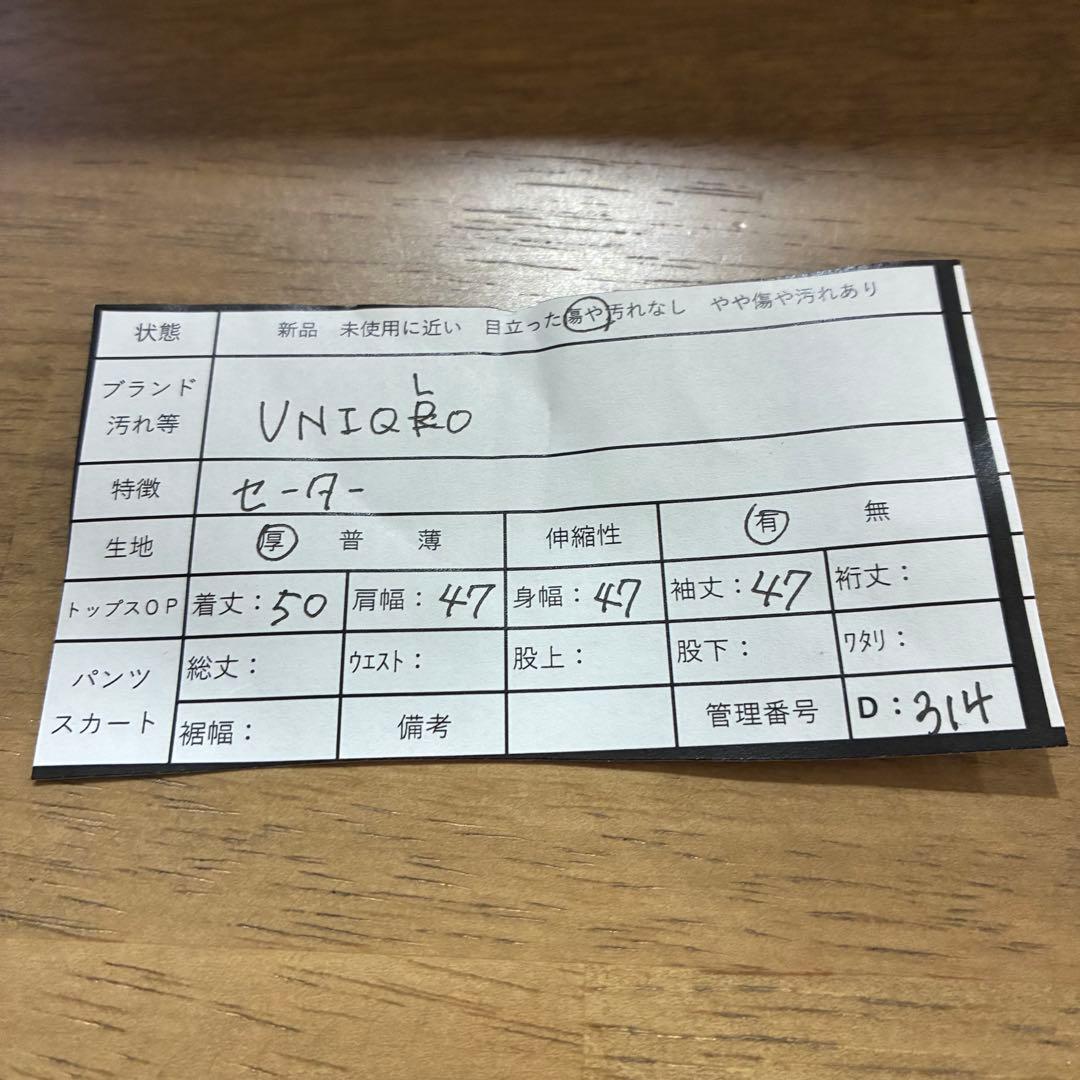 状態 新品 未使用に近い 目立った傷や汚れなし やや傷や汚れあり
ブランド
汚れ等
L
UNIQO
特徴 セーター
生地 厚 普 薄 伸縮性 有 無
トップスOP 着丈：50 肩幅：47 身幅：47 袖丈：47 裄丈：
パンツ
スカート
総丈： ウエスト： 股上： 股下： ワタリ：
裾幅： 備考 管理番号 D：314